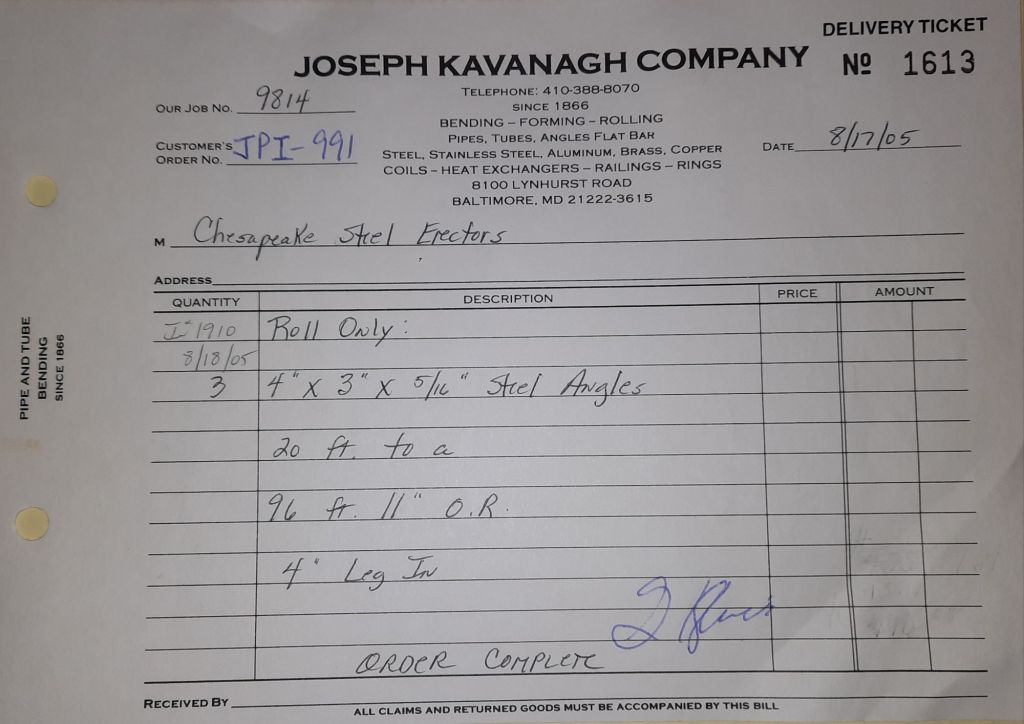 DELIVERY TICKET
JOSEPH KAVANAGH COMPANY
Nº 1613
TELEPHONE: 410-388-8070
SINCE 1866
BENDING – FORMING – ROLLING
PIPES, TUBES, ANGLES FLAT BAR
STEEL, STAINLESS STEEL, ALUMINUM, BRASS, COPPER
COILS – HEAT EXCHANGERS – RAILINGS – RINGS
8100 LYNHURST ROAD
BALTIMORE, MD 21222-3615
OUR JOB NO. 9814
CUSTOMER'S ORDER NO. JPI-991
DATE 8/17/05
M Chesapeake Steel Erectors
ADDRESS
QUANTITY DESCRIPTION PRICE AMOUNT
1910 Roll Only:
8/18/05
3 4" X 3" X 5/16" Steel Angles
20 ft. to a
96 ft. 11" O.R.
4" Leg In
ORDER COMPLETE
RECEIVED BY
ALL CLAIMS AND RETURNED GOODS MUST BE ACCOMPANIED BY THIS BILL
PIPE AND TUBE
BENDING
SINCE 1866